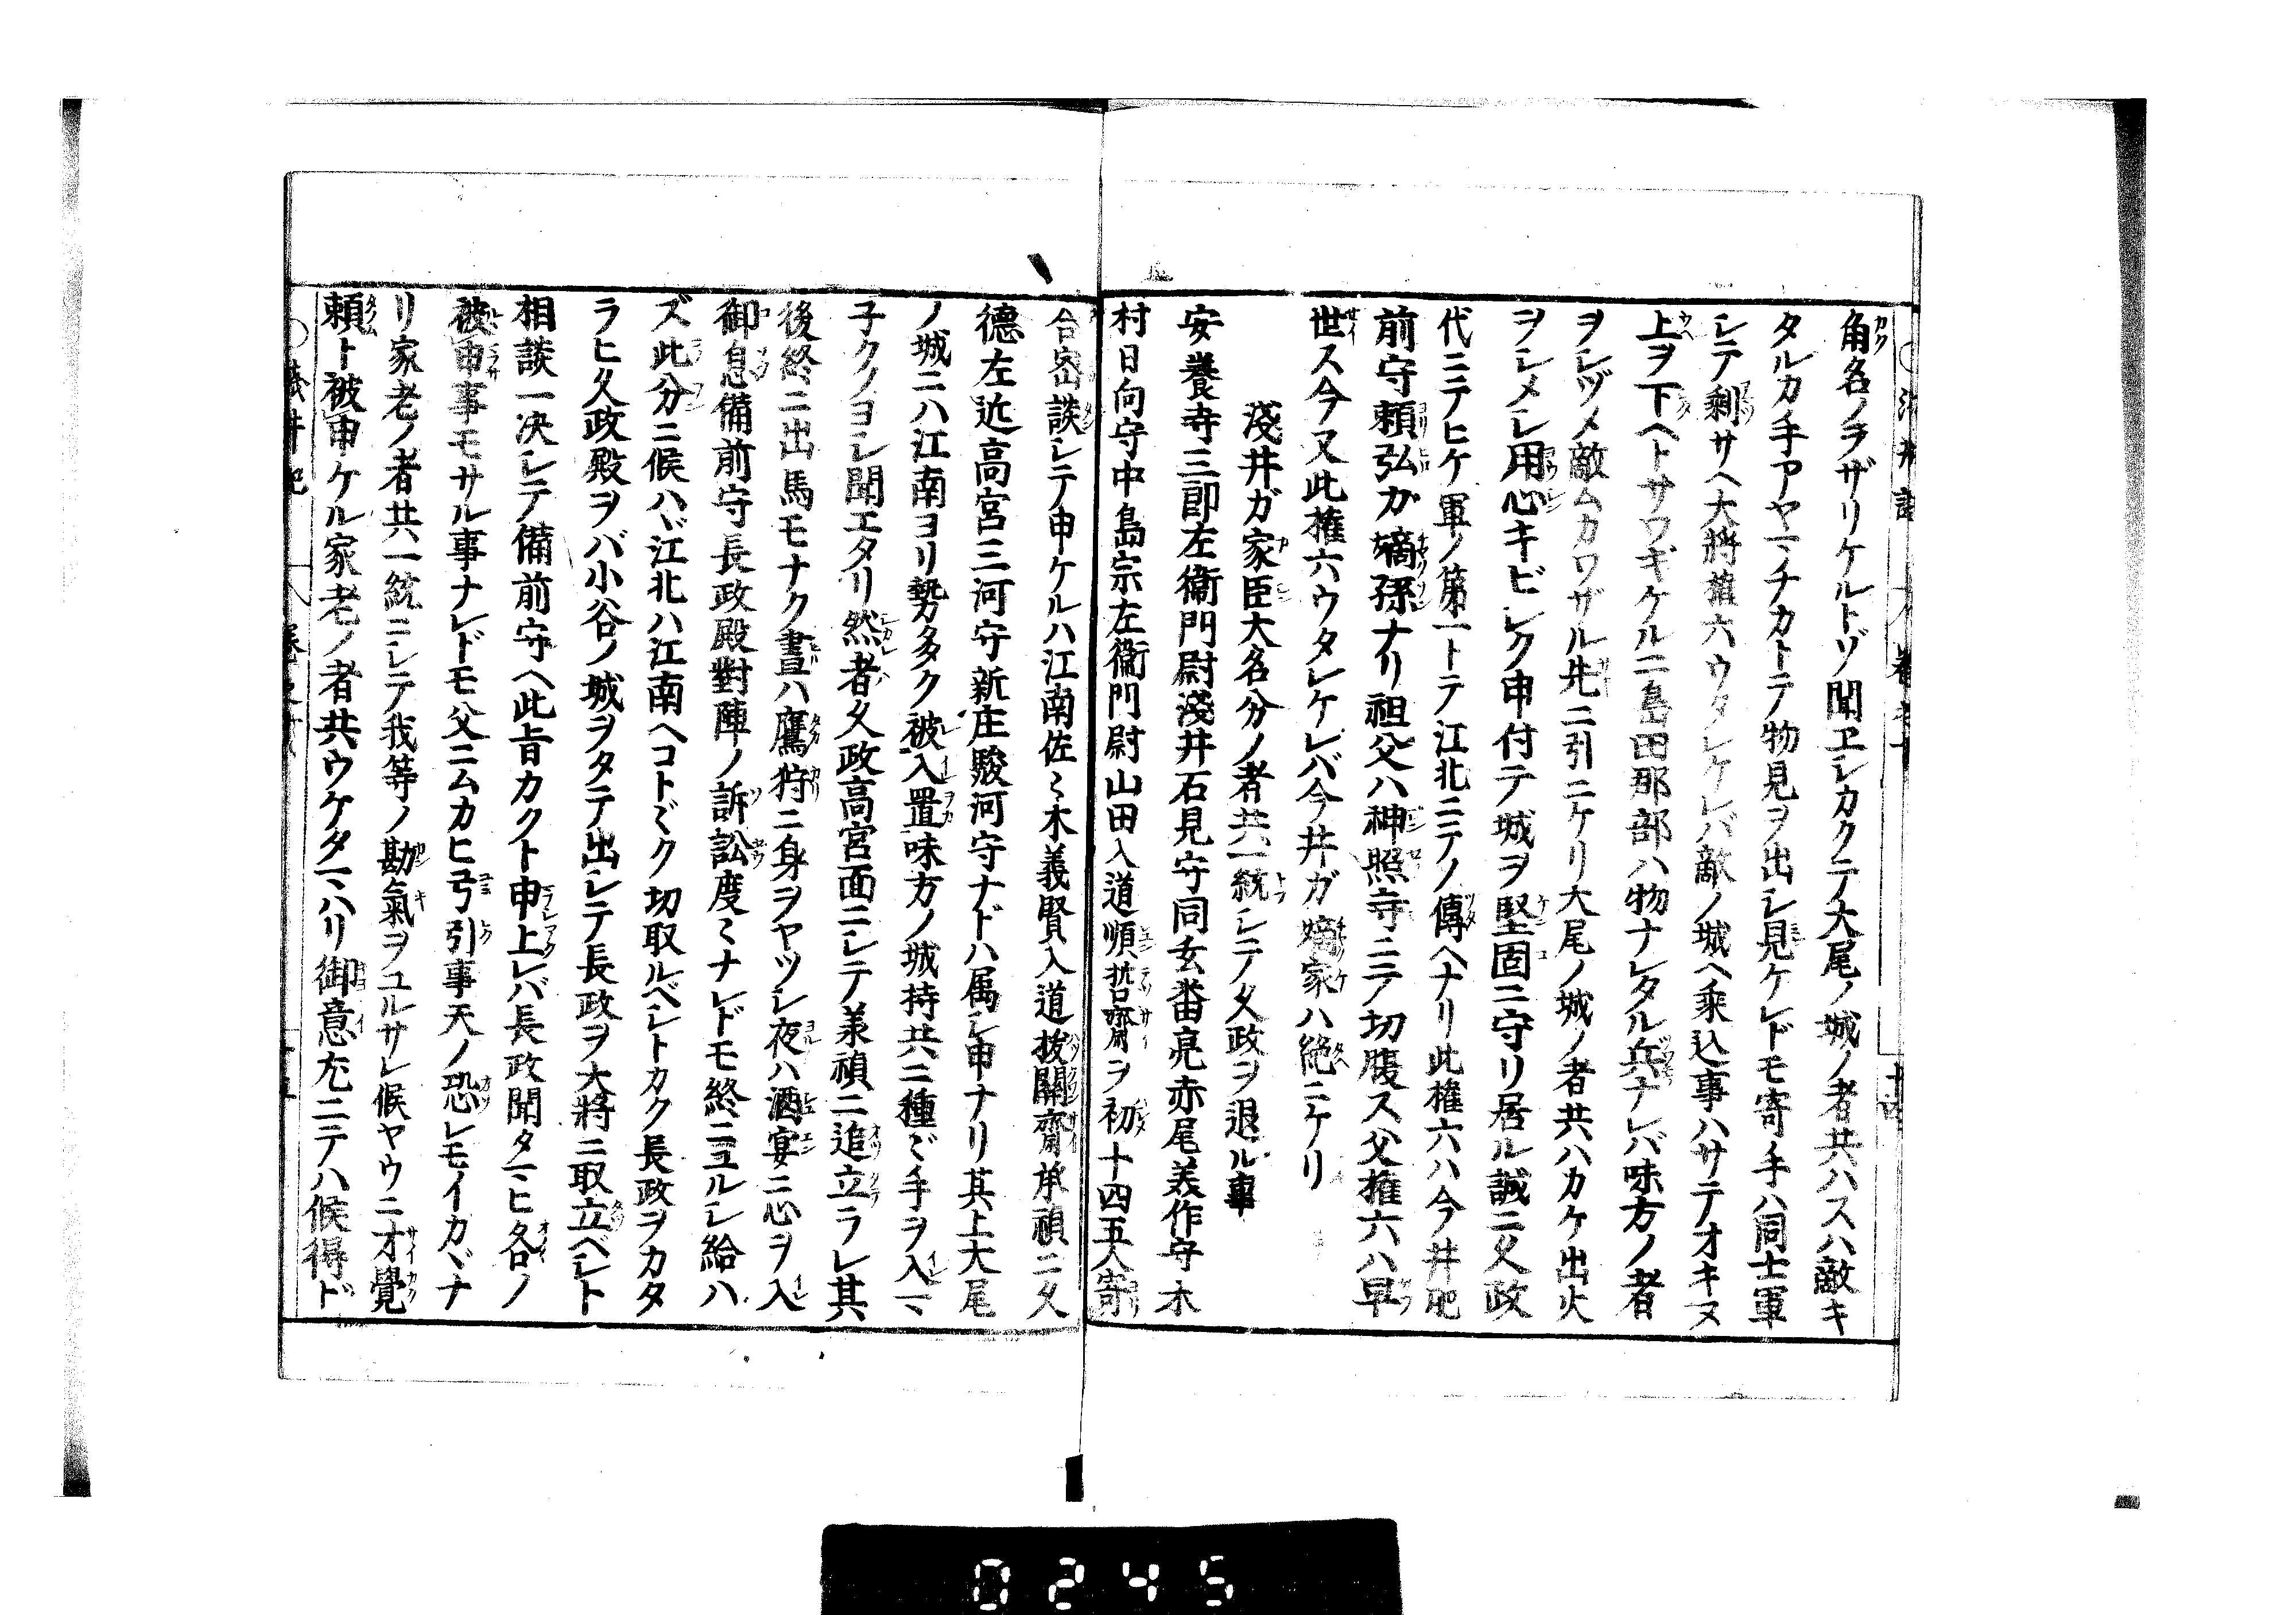 角名ノヲザリケルトゾ聞ヱシカクテ大尾ノ城ノ者共ハスハ敵キ
タルカ手アヤマチカトテ物見ヲ出シ見ケレドモ寄手ハ同士軍
シテ剰サヘ大将権六ウタレケレバ敵ノ城ヘ乗込事ハサテオキヌ
上ヲ下ヘトサワギケルニ島田那部ハ物ナレタル兵ナレバ味方ノ者
ヲシヅメ敵ムカワザル先ニ引ニケリ大尾ノ城ノ者共ハカケ出火
ヲシメシ用心キビシク申付テ城ヲ堅固ニ守リ居ル誠ニ久政
代ニテヒケ軍ノ第一トテ江北ニテノ傳ヘナリ此権六ハ今井肥
前守頼弘カ嫡孫ナリ祖父ハ神照寺ニテ切腹ス父権六ハ早
世ス今又此権六ウタレケレバ今井ガ嫡家ハ絶ニケリ
淺井ガ家臣大名分ノ者共一統シテ久政ヲ退ル事
安養寺三郎左衞門尉淺井石見守同玄番亮赤尾美作守木
村日向守中島宗左衞門尉山田入道順哲齋ヲ初十四五人寄
合密談シテ申ケルハ江南佐々木義賢入道抜關齋承禎ニ久
德左近高宮三河守新庄駿河守ナドハ属シ申ナリ其上大尾
ノ城ニハ江南ヨリ勢多ク被入置味方ノ城持共ニ種々手ヲ入マ
子クノヨシ聞エタリ然者久政高宮面ニシテ義禎ニ追立ラレ其
後終ニ出馬モナク晝ハ鷹狩ニ身ヲヤツシ夜ハ酒宴ニ心ヲ入
御息備前守長政殿對陣ノ訴訟度々ナレドモ終ニユルシ給ハ
ズ此分ニ候ハヾ江北ハ江南ヘコトヾク切取ルベシトカク長政ヲカタ
ラヒ久政殿ヲバ小谷ノ城ヲタテ出シテ長政ヲ大將ニ取立ベシト
相談一決シテ備前守ヘ此旨カクト申上レバ長政聞タマヒ各ノ
被申事モサル事ナレドモ父ニムカヒ弓引事天ノ恐レモイカヾナ
リ家老ノ者共一統ニシテ我等ノ勘氣ヲユルサレ候ヤウニ才覺
頼ト被申ケル家老ノ者共ウケタマハリ御意尤ニテハ候得ド
0245